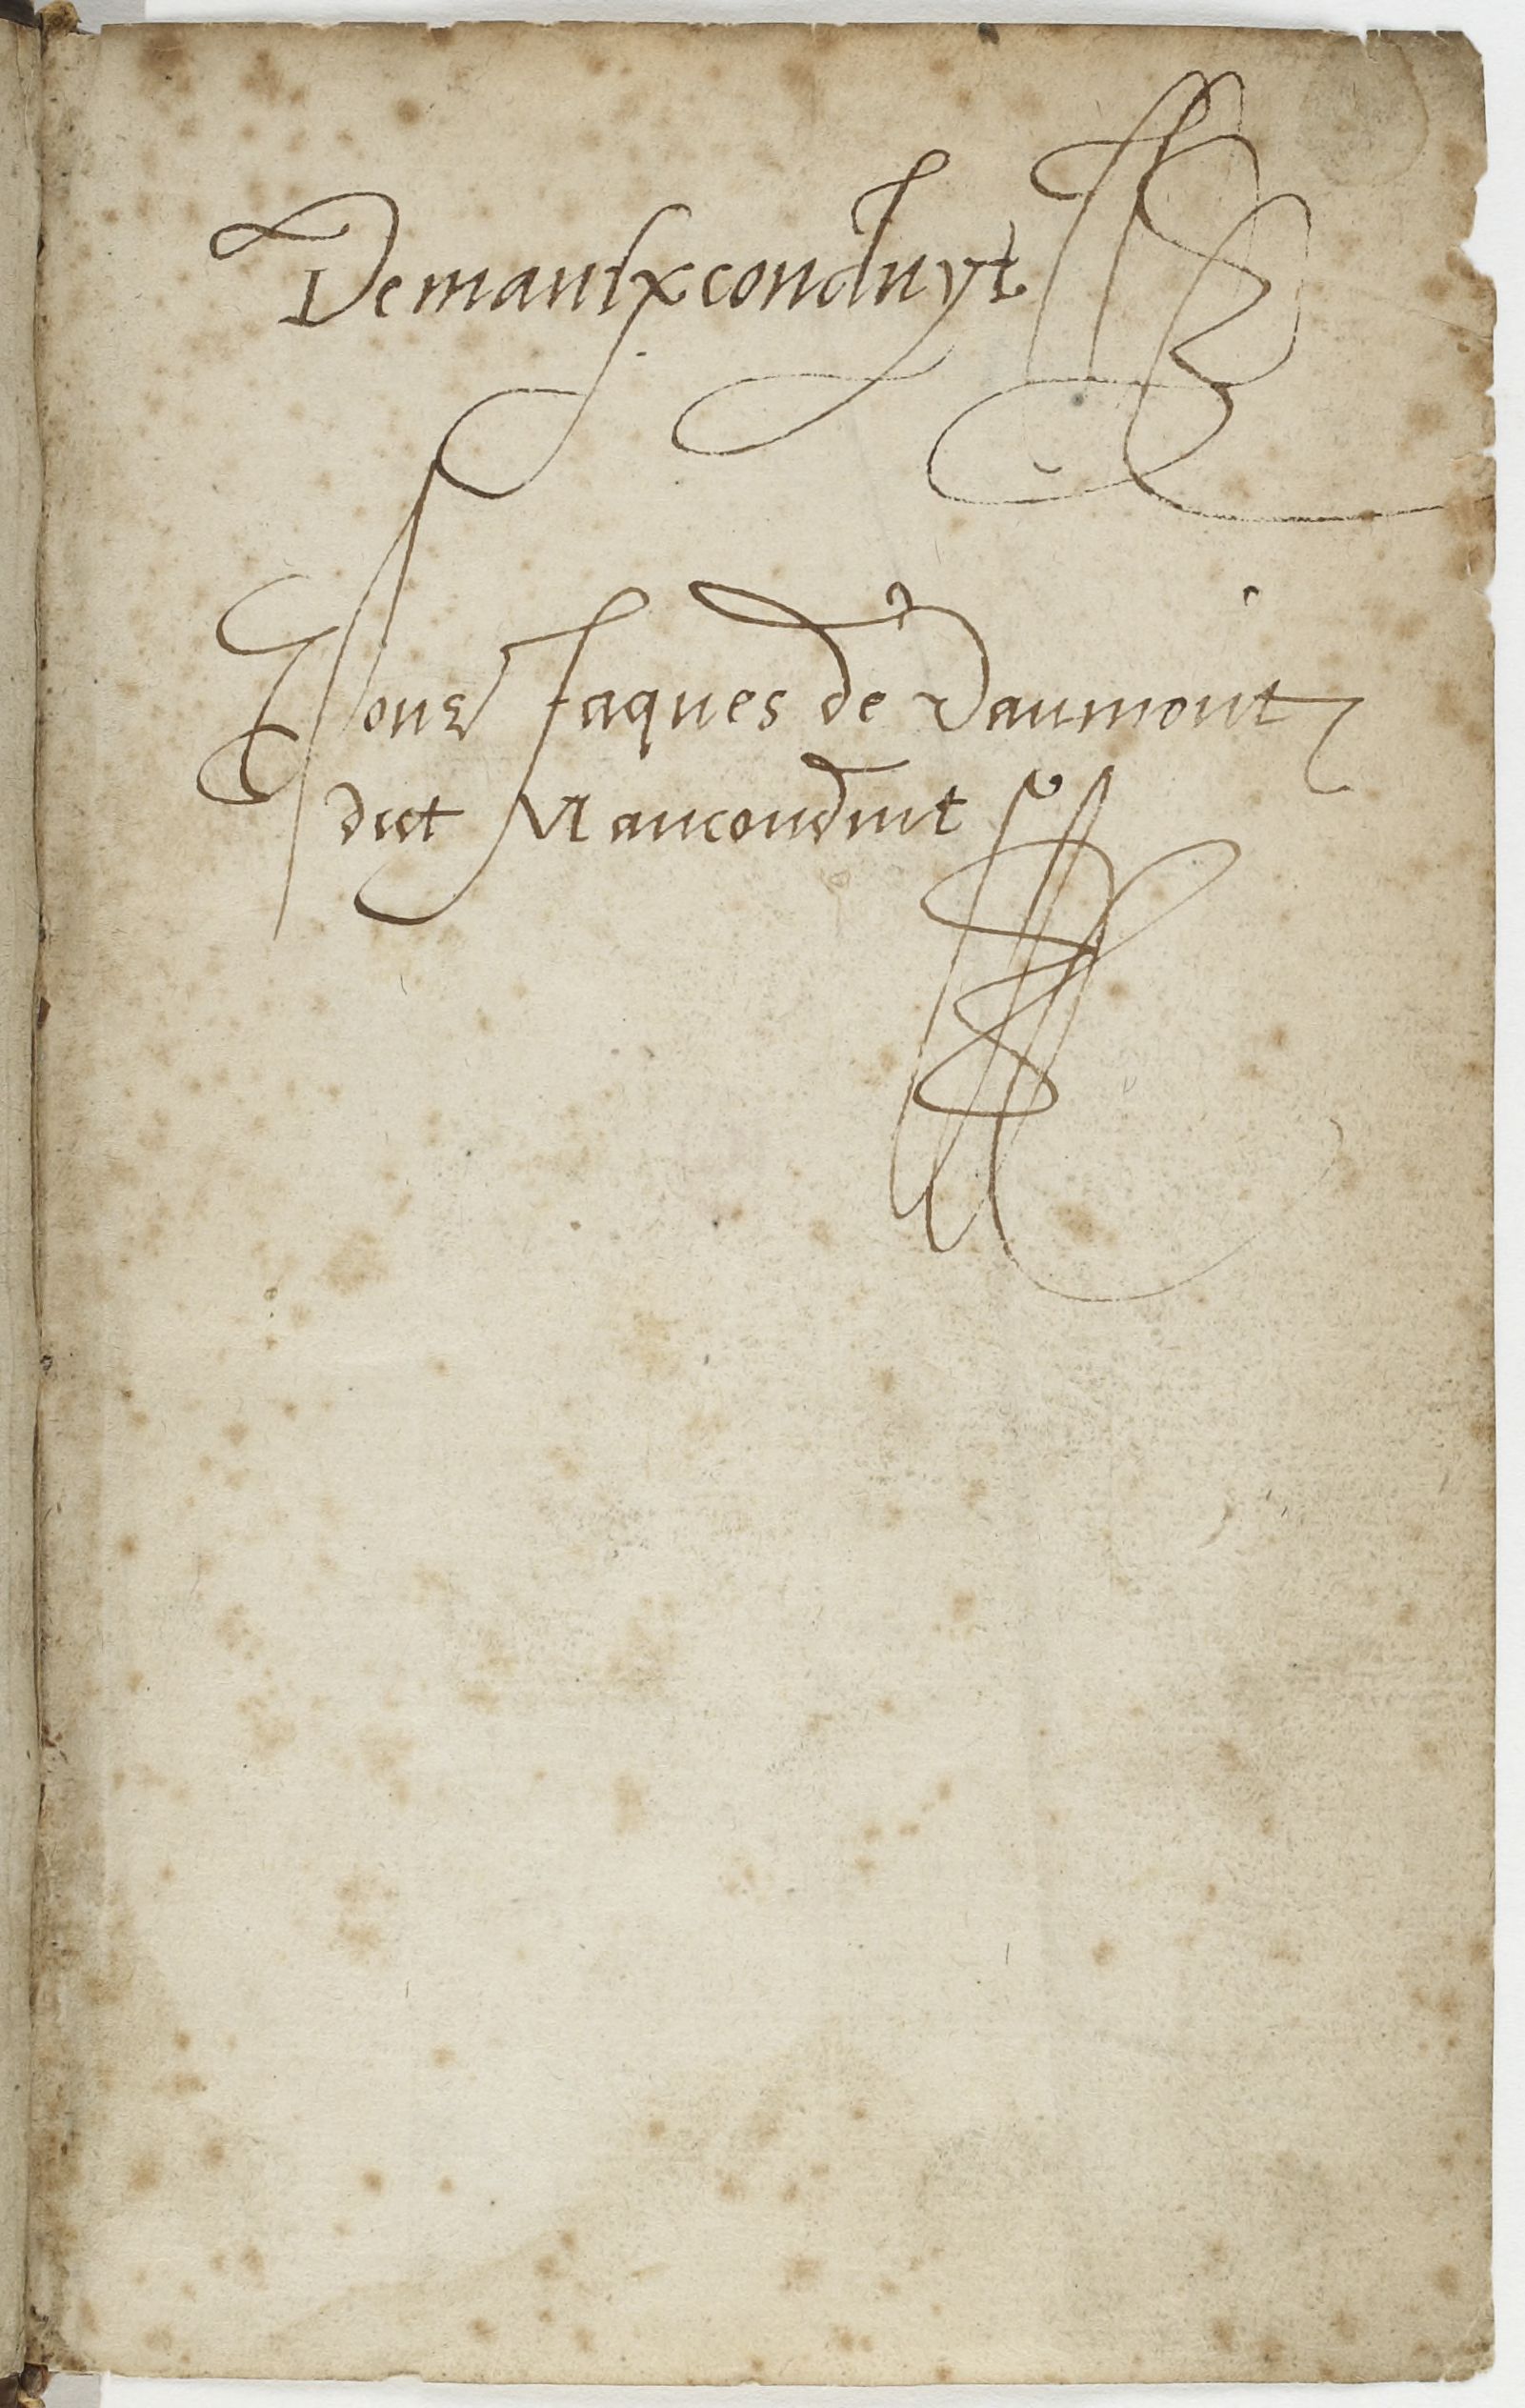 Demaulxconduyt
Pour Jaques de Vaumont
dict Mauconduit